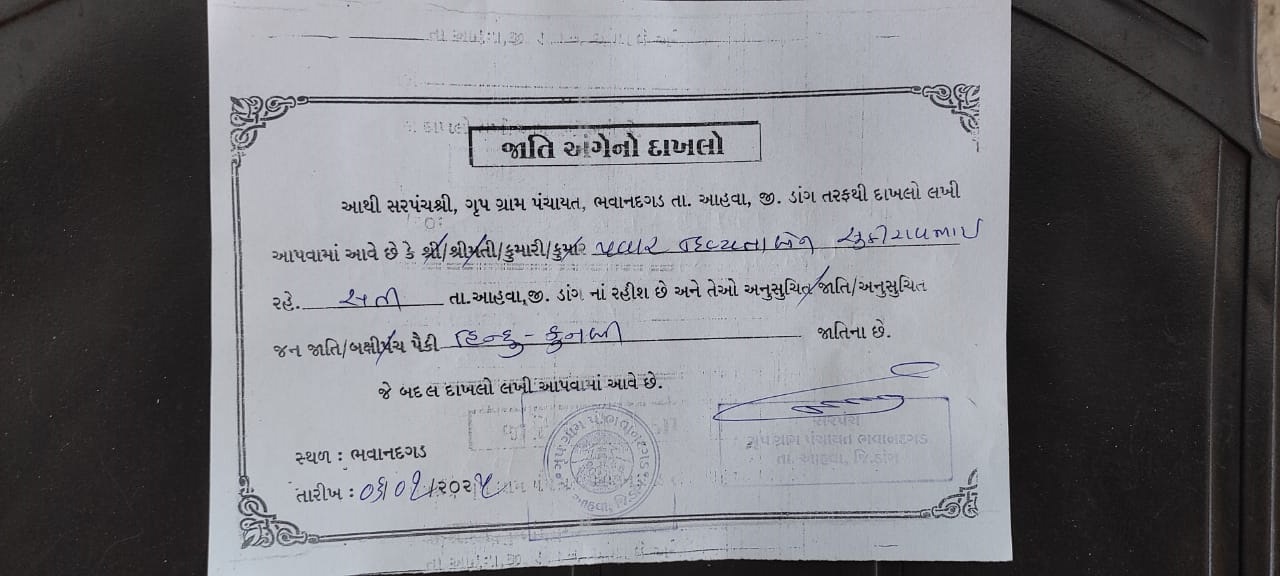 જાતિ અંગેનો દાખલો
આથી સરપંચશ્રી, ગૃપ ગ્રામ પંચાયત, ભવાનદગડ તા. આહવા, જી. ડાંગ તરફથી દાખલો લખી
આપવામાં આવે છે કે શ્રી/શ્રીમતી/કુમારી/કુમાર પવાર
રહે. તા.આહવા,જી. ડાંગ નાં રહીશ છે અને તેઓ અનુસુચિત જાતિ/અનુસુચિત
જન જાતિ/બક્ષીપંચ પૈકી હિન્દુ - કુનબી જાતિના છે.
જે બદલ દાખલો લખી આપવામાં આવે છે.
સરપંચ
ગૃપ ગ્રામ પંચાયત ભવાનદગડ
તા. આહવા, જિ.ડાંગ
સ્થળ : ભવાનદગડ
તારીખ :